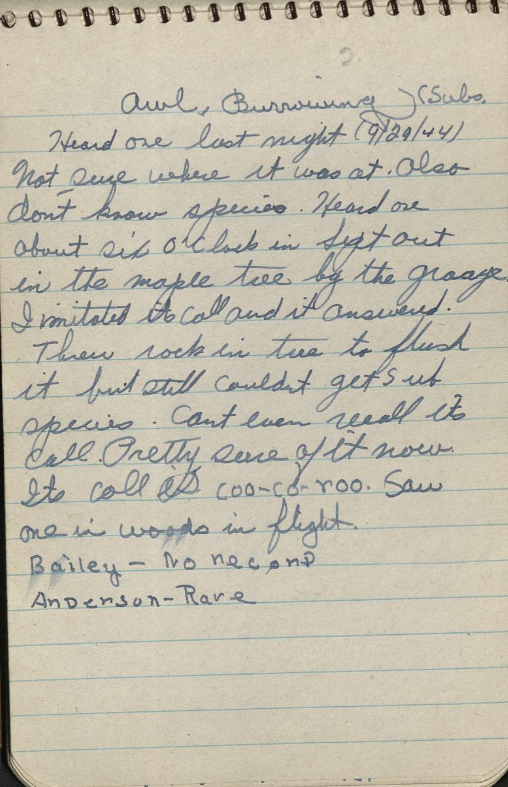 2.
Owl, Burrowing (Subs.
Heard one last night (9/29/44)
Not sure where it was at. Also
don't know species. Heard one
about six o'clock in Sept out
in the maple tree by the graage.
I imitated its call and it answered.
Threw rock in tree to flush
it but still couldnt get sub
species. Cant even recall its
call. Pretty sure of it now.
Its call is coo-co-roo. Saw
one in woods in flight.
Bailey - No record
Anderson - Rare